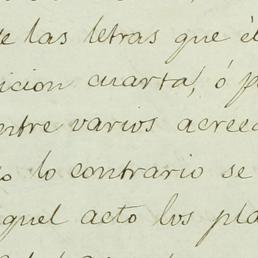 de las letras que él
icion cuarta, ó p
entre varios acree
o lo contrario se
quel acto los pla